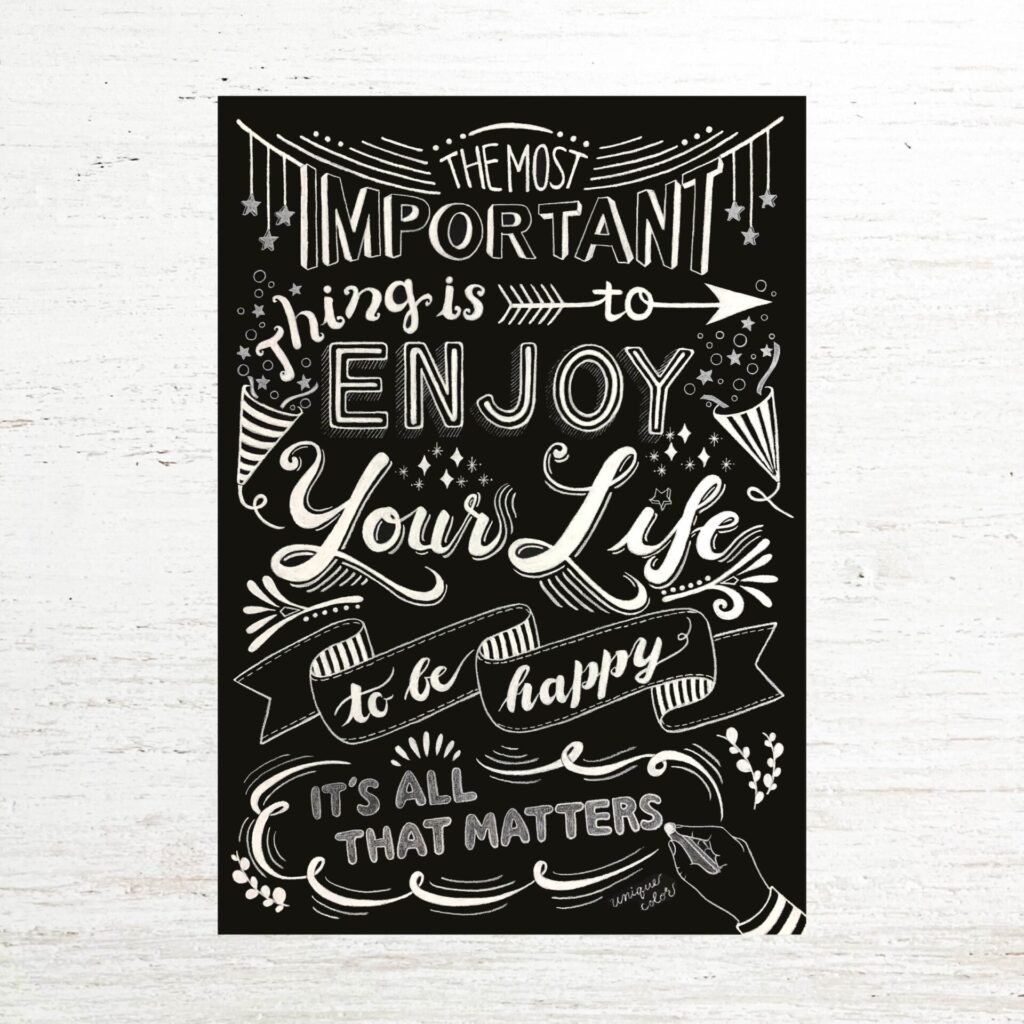 THE MOST
IMPORTANT
Thing is to
ENJOY
Your Life
to be happy
IT'S ALL
THAT MATTERS
unique
color